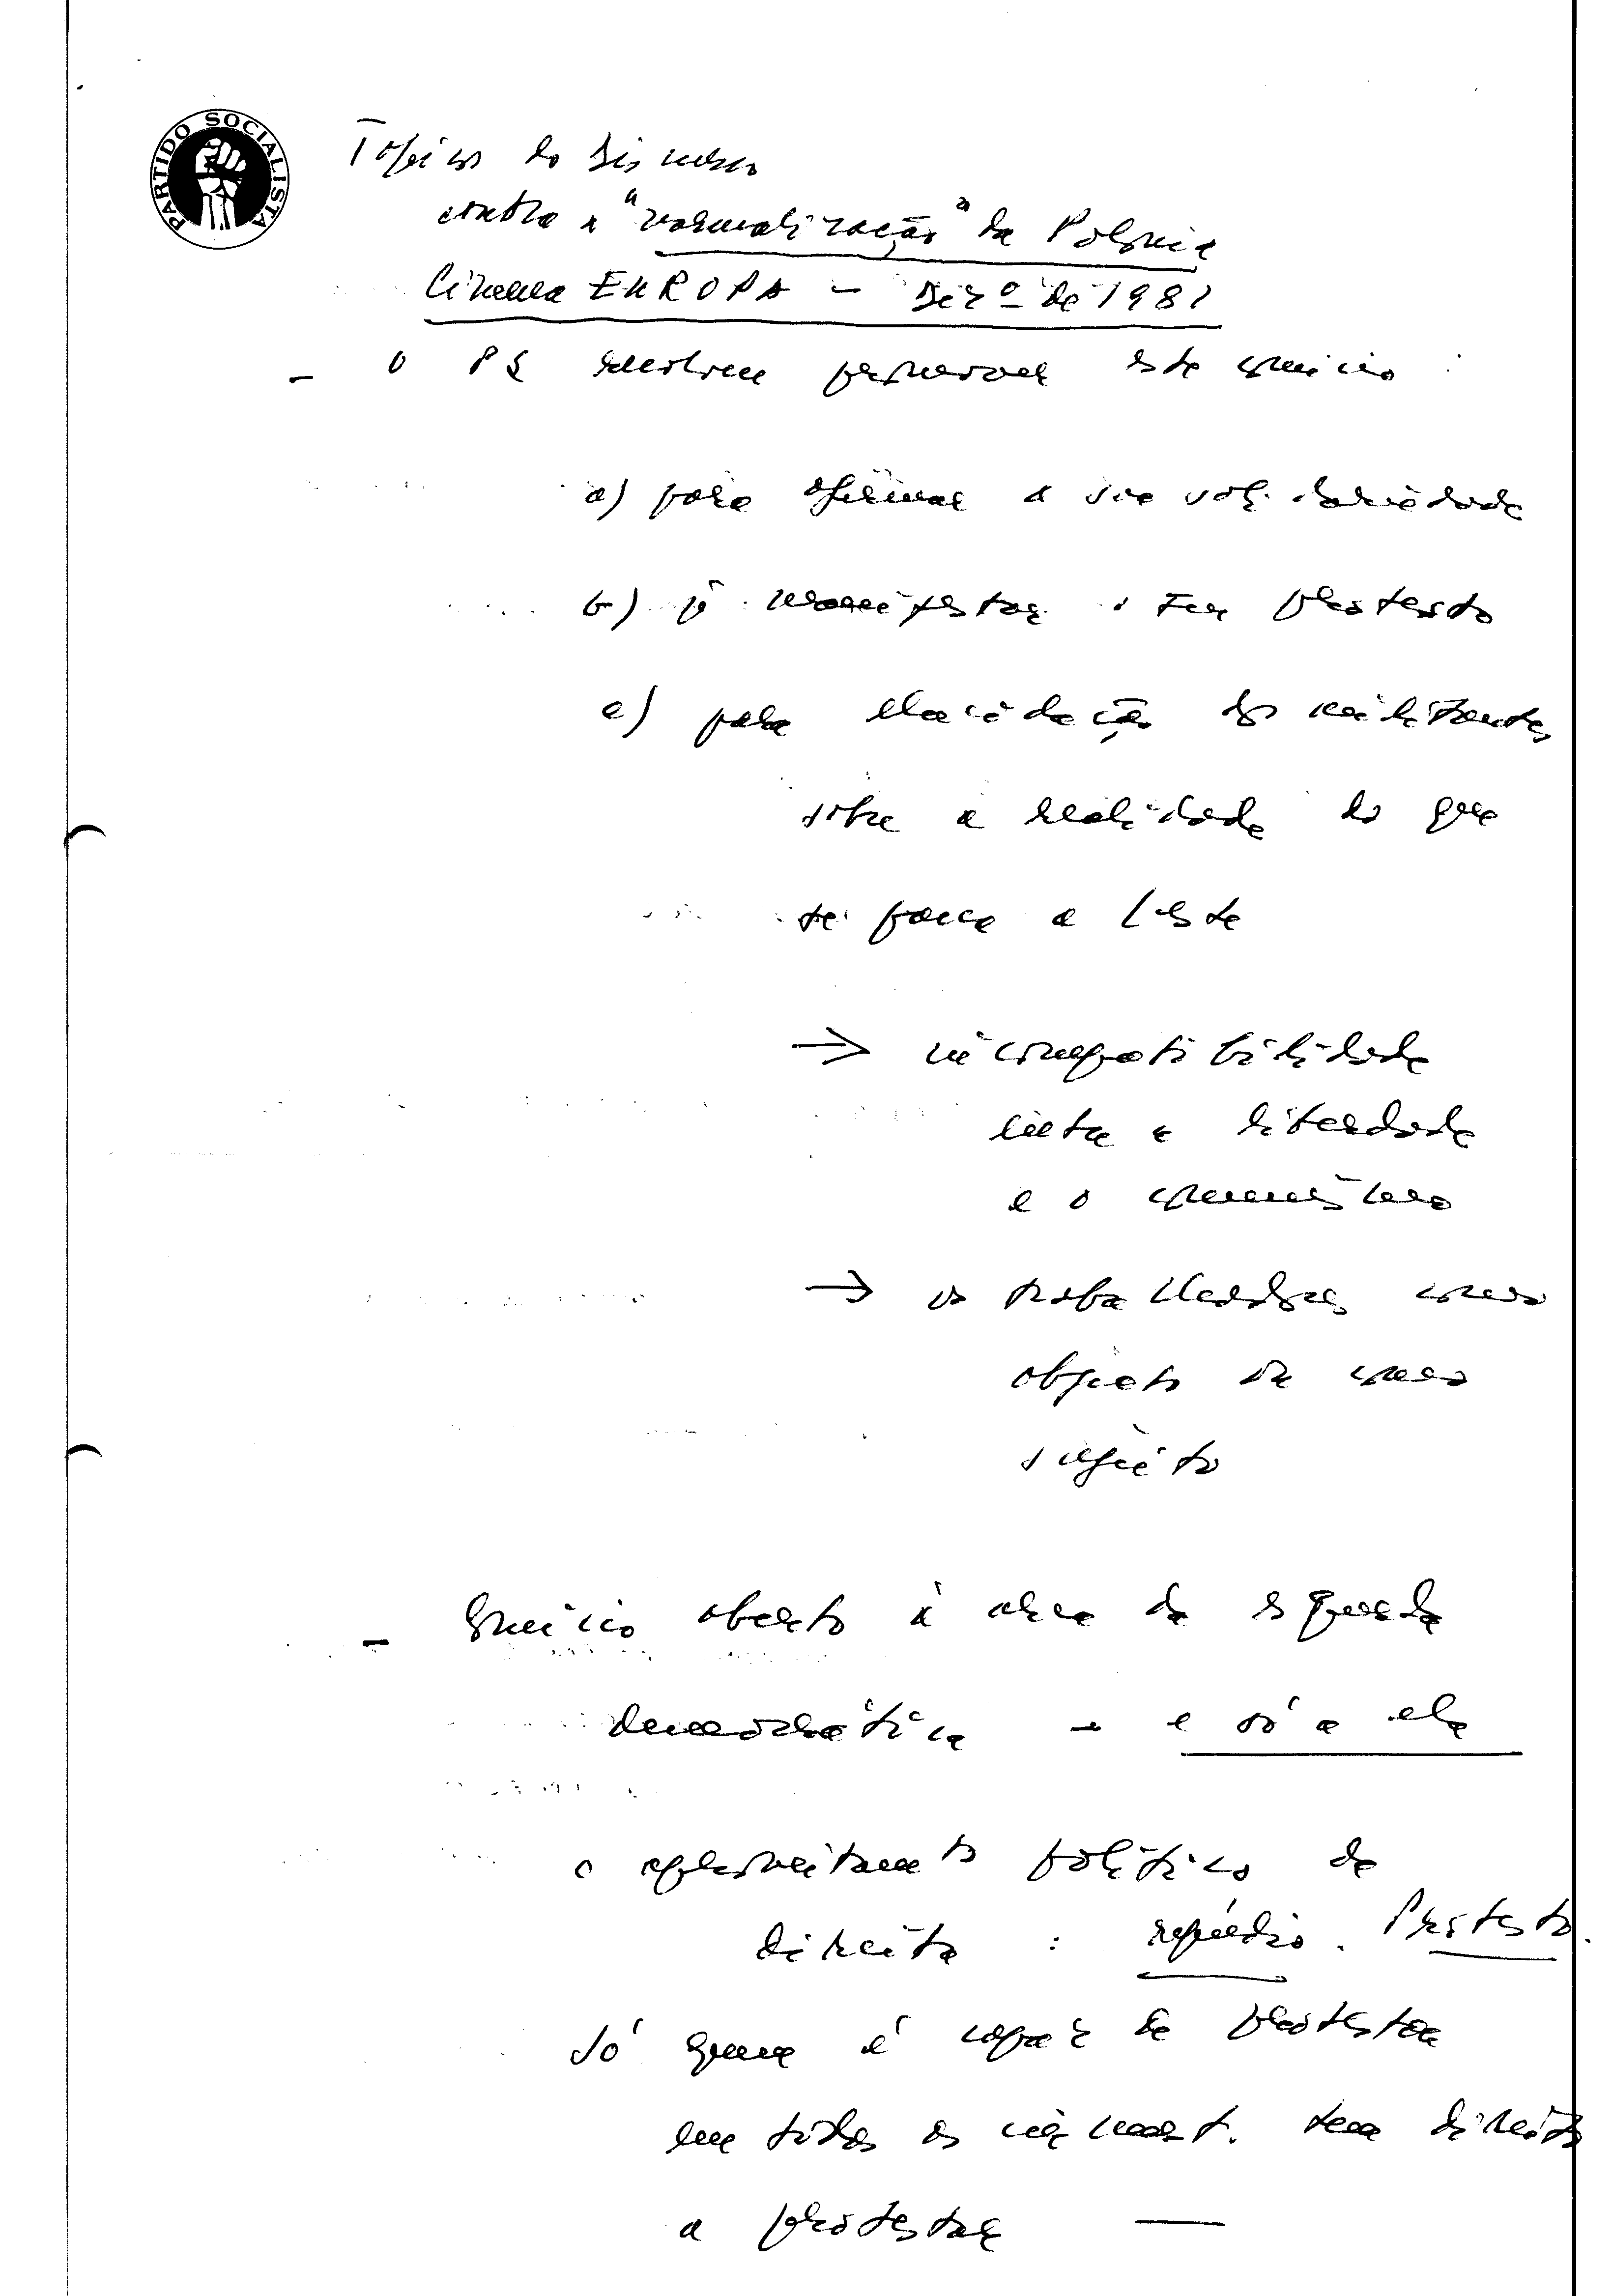 PARTIDO SOCIALISTA
Tópicos do Discurso
contra a "normalização" da Polónia
Cinema EUROPA - Dez.º de 1981
- O PS resolveu promover este comício :
a) para afirmar a sua solidariedade
b) p. manifestar o seu protesto
c) para elucidação dos militantes
sobre a realidade do que
se passa a Leste
→ incompatibilidade
entre a liberdade
e o comunismo
→ os trabalhadores como
objecto e como
sujeito
- Comício aberto à área da esquerda
democrática - e só a ela
o aproveitamento político da
direita : repúdio. Protesto.
Só quem é capaz de protestar
em todas as tem direito
a protestar —